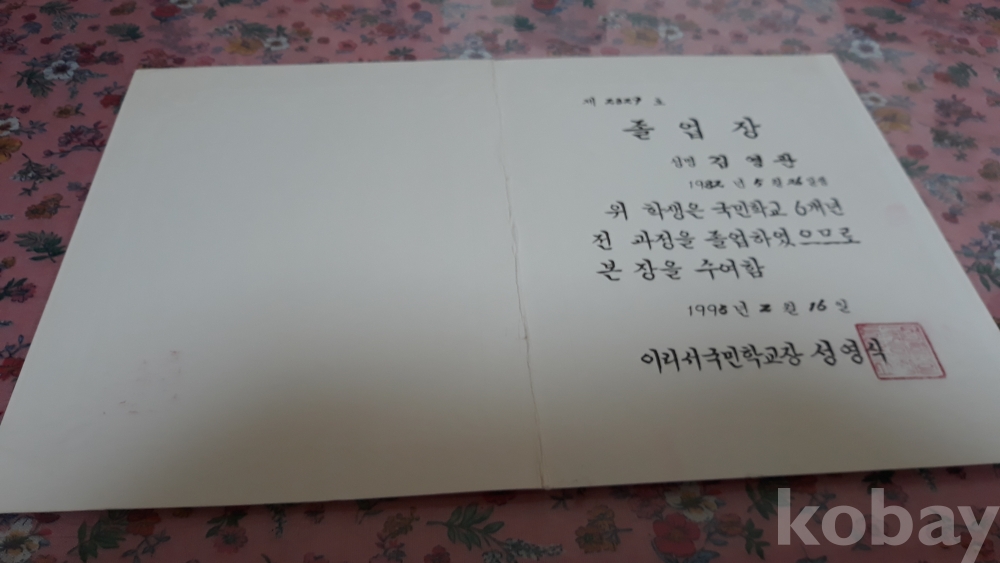 제 2327 호
졸업장
성명 김영관
1982년 5월 26일생
위 학생은 국민학교 6개년
전 과정을 졸업하였으므로
본 장을 수여함
1995년 2월 16일
이리서국민학교장 성영식
kobay